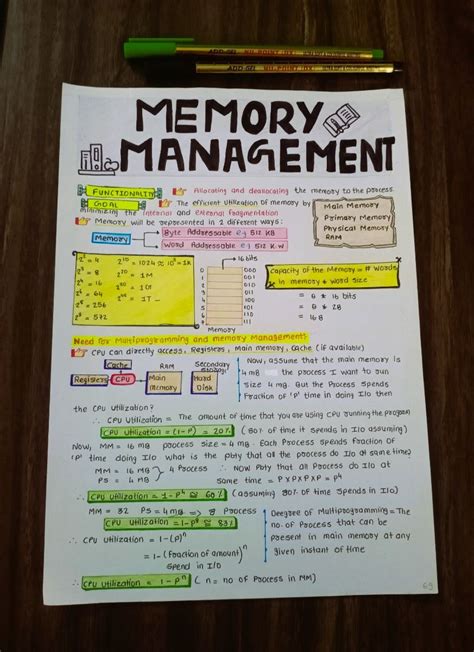 MEMORY
MANAGEMENT
FUNCTIONALITY Allocating and deallocating the memory to the process.
GOAL The efficient utilization of memory by
minimizing the internal and External fragmentation
Main Memory
Primary Memory
Physical Memory
RAM
Memory will be represented in 2 different ways:
Memory
Byte Addressable eg 512 KB
Word Addressable eg 512 K.W
2² = 4
2³ = 8
2⁴ = 16
2⁶ = 64
2⁸ = 256
2¹⁰ = 1024 ≈ 10³ = 1K
2²⁰ = 1M
2⁴⁰ = 1T
16 bits
0 000
1 001
2 010
3 011
4 100
5 101
6 110
7 111
Memory
Capacity of the Memory = # words
in memory * word size
= 8 * 16 bits
= 8 * 2B
= 16B
Need for Multiprogramming and memory Management:
CPU can directly access, Registers, main memory, cache (if available)
Cache
RAM
Secondary
storage
Registers
CPU
Main
Memory
Hard
Disk
Now, assume that the main memory is
4 MB the process I want to run
size 4 MB. But the Process spends
fraction of 'P' time in doing I/o then
the CPU utilization?
∴ CPU Utilization = The amount of time that you are using CPU running the program
CPU Utilization = (1-P) = 20% (80% of time it spends in I/o assuming)
Now, MM = 16 MB process size = 4 MB. Each Process spends fraction of
'P' time doing I/o what is the pbty that all the process do I/o at same time?
MM = 16 MB
PS = 4 MB
4 Process
∴ Now pbty that all Process do I/o at
same time = P×P×P×P = P⁴
∴ CPU Utilization = 1-P⁴ ≅ 60% (assuming 80% of time spends in I/o)
MM = 32 PS = 4MB => 8 Process
CPU utilization = 1-P⁸ ≅ 83%
∴ CPU utilization = 1-(P)ⁿ
= 1-(fraction of amount)ⁿ
spend in I/o
Deegree of Multiprogramming = The
no. of Process that can be
present in main memory at any
given instant of time
∴ CPU utilization = 1-Pⁿ (n = no of Process in MM)
69